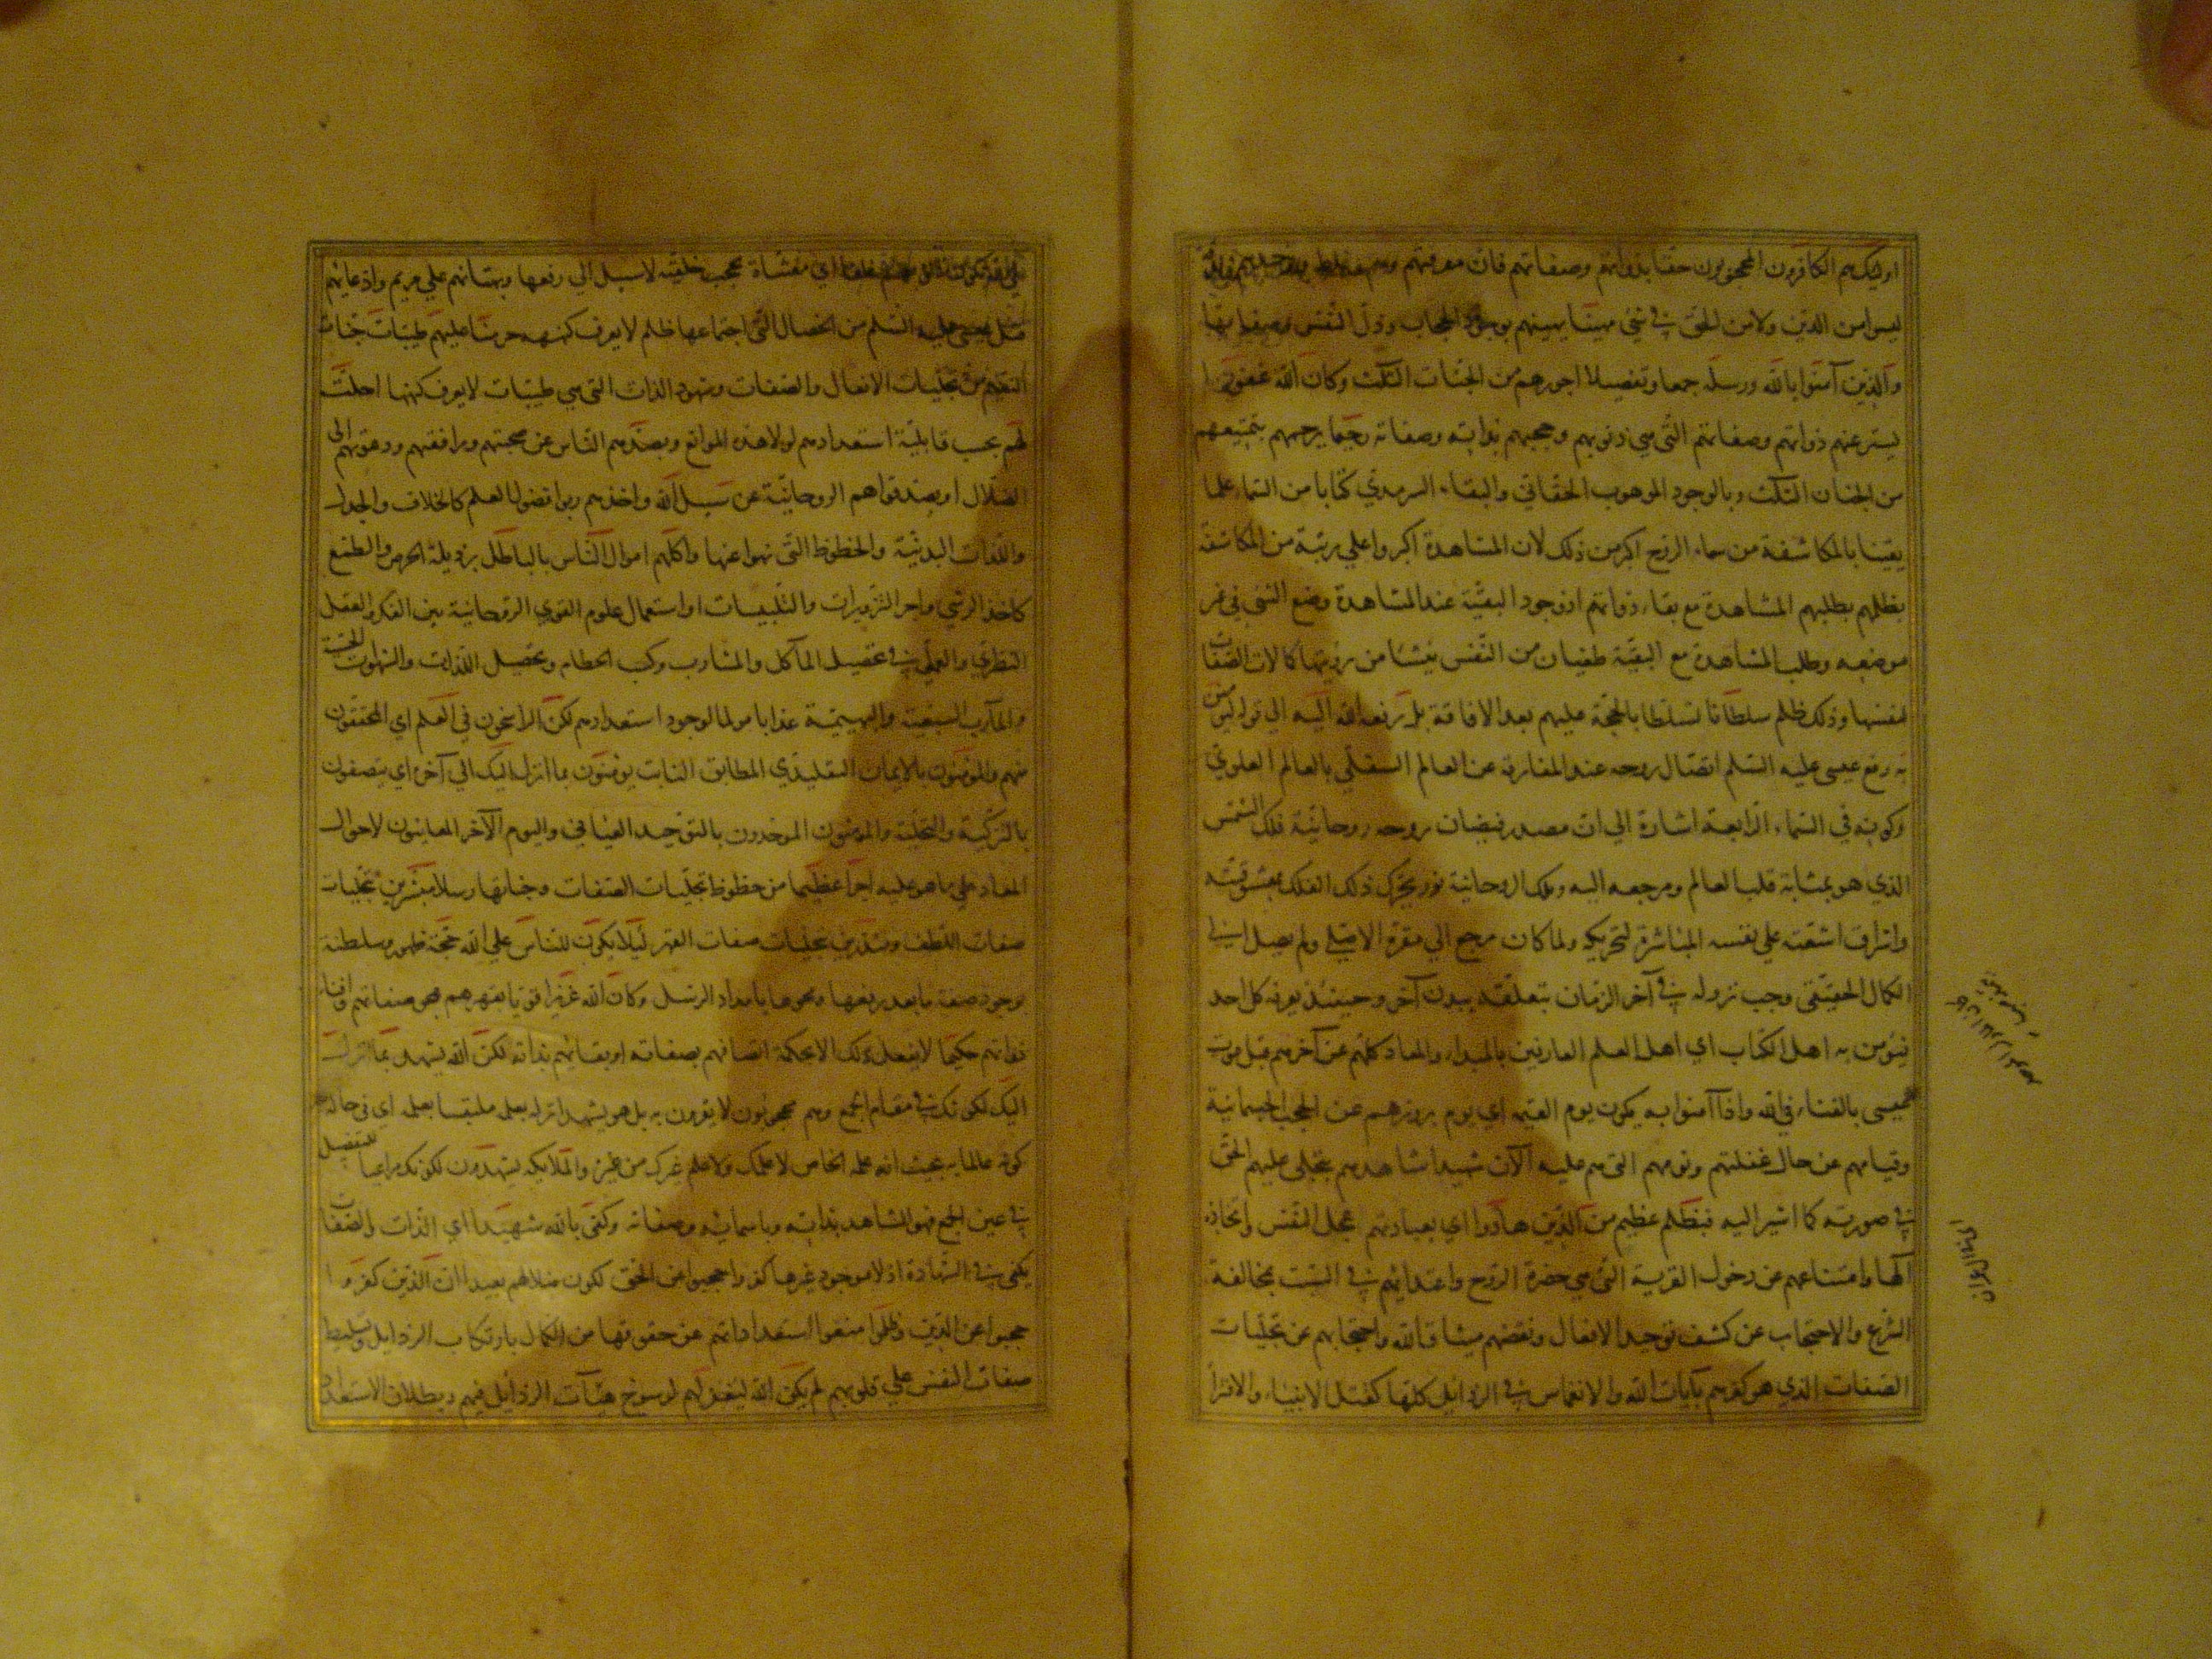 اولئك هم الكافرون المحجوبون حقا بذواتهم وصفاتهم فان معرفتهم وهم
ليس من الدين ولا من الحق في شيء مهينا يهينهم بوجود الحجاب وذل النفس وصفاتها
والذين آمنوا بالله ورسله جمعا وتفصيلا اجورهم من الجنات الثلث وكان الله غفورا
يستر عنهم ذواتهم وصفاتهم التي هي ذنوبهم وحجبهم بذواته وصفاته رحيما يرحمهم بتمتيعهم
من الجنان الثلث وبالوجود الموهوب الحقاني والبقاء السرمدي كتابا من السماء علما
يقينا بالمكاشفة من سماء الروح اكبر من ذلك لان المشاهدة اكبر واعلي مرتبة من المكاشفة
بظلمهم بطلبهم المشاهدة مع بقاء ذواتهم اذ وجود البقية عند المشاهدة وضع الشيء في غير
موضعه وطلب المشاهدة مع البقية طغيان من النفس ينشا من رؤيتها كمالات الصفات
لنفسها وذلك ظلم سلطانا تسلطا بالحجة عليهم بعد الافاقة بل رفعه الله اليه الي قوله ليؤمنن
به رفع عيسى عليه السلم اتصال روحه عند المفارقة عن العالم السفلي بالعالم العلوي
وكونه في السماء الرابعة اشارة الي ان مصدر فيضان روحه روحانية فلك الشمس
الذي هو بمثابة قلب العالم ومرجعه اليه وتلك الروحانية نور يحرك ذلك الفلك بمعشوقيته
واشراق اشعته علي نفسه المباشرة لتحريكه ولما كان مرجعه الي مقره الاصلي ولم يصل الي
الكمال الحقيقي وجب نزوله في آخر الزمان بتعلقه ببدن آخر وحينئذ يعرفه كل احد
فيؤمن به اهل الكتاب اي اهل العلم العارفين بالمبداء والمعاد كلهم عن آخرهم قبل موت
عيسى بالفناء في الله واذا آمنوا به يكون يوم القيمه اي يوم بروزهم عن الحجب الجسمانية
وقيامهم عن حال غفلتهم ونومهم التي هم عليه الآن شهيدا شاهدهم يتجلى عليهم الحق
في صورته كما اشير اليه فبظلم عظيم من الذين هادوا اي بعبادتهم عجل النفس واتخاذه
الها وامتناعهم عن دخول القرية التي هي حضرة الروح واعتدائهم في السبت بمخالفة
الشرع والاحتجاب عن كشف توحيد الافعال ونقضهم ميثاق الله واحتجابهم عن تجليات
الصفات الذي هو كفرهم بآيات الله والانغماس في الرذايل كلها كقتل الانبياء والافترا
اي مغشاة بحجب خلقية لا سبيل الي رفعها وبهتانهم علي مريم وادعائهم
قتل عيسى عليه السلم من الخصال التي اجتماعها ظلم لا يعرف كنهه حرمنا عليهم طيبات جنات
النعيم من تجليات الافعال والصفات وشهود الذات التي هي طيبات لا يعرف كنهها احلت
لهم بحسب قابلية استعدادهم لولا هذه الموانع وبصدهم الناس عن صحبتهم ومرافقتهم ودعوتهم الى
الضلال او بصد قواهم الروحانية عن سبيل الله واخذهم ربوا فضول العلم كالخلاف والجدل
واللذات البدنية والحظوظ التي نهوا عنها واكلهم اموال الناس بالباطل برذيلة الحرص والطمع
كاخذ الرشي واجر التزويرات والتلبيسات او استعمال علوم القوي الروحانية بين الفكر والعقل
النظري والعملي في تحصيل المآكل والمشارب وكسب الحطام وتحصيل اللذات والشهوات الحسية
والمآرب السبعية والبهيمية عذابا مولما لوجود استعدادهم لكن الراسخون في العلم اي المحققون
منهم والمؤمنون بالايمان التقليدي المطابق الثابت يؤمنون بما انزل اليك الي آخره اي يتصفون
بالتزكية والتحلية والمؤمنون الموحدون بالتوحيد العياني واليوم الآخر المعاينون لاحوال
المعاد علي ما هو عليه اجرا عظيما من حظوظ تجليات الصفات وجناتها رسلا مبشرين بتجليات
صفات اللطف ومنذرين بتجليات صفات القهر ليلا يكون للناس علي الله حجة ظهور وسلطنة
بوجود صفة ما بعد رفعها ومحوها بامداد الرسل وكان الله عزيزا قويا يقهرهم بمحو صفاتهم وافناء
ذواتهم حكيما لا يفعل ذلك الا بحكمة اتصافهم بصفاته او بقائهم بذاته لكن الله يشهد بما انزل
اليك لكونك في مقام الجمع وهم محجوبون لا يقرون به بل هو يشهد انزله بعلمه ملتبسا بعلمه اي في حاله
كونه عالما به بحيث انه علمه الخاص لا علمك ولا علم غيرك من غيره والملايكه يشهدون لكونك مراعيا للتفصيل
في عين الجمع فهو الشاهد بذاته وباسمائه وصفاته وكفى بالله شهيدا اي الذات والصفات
يكفي في الشهادة اذ لا موجود غيرها كفروا احتجبوا عن الحق لكون ضلالهم بعيدا ان الذين كفروا
حجبوا عن الدين وظلموا منعوا استعداداتهم عن حقوقها من الكمال بارتكاب الرذايل وتسليط
صفات النفس علي قلوبهم لم يكن الله ليغفر لهم لرسوخ هيآت الرذايل فيهم وبطلان الاستعداد